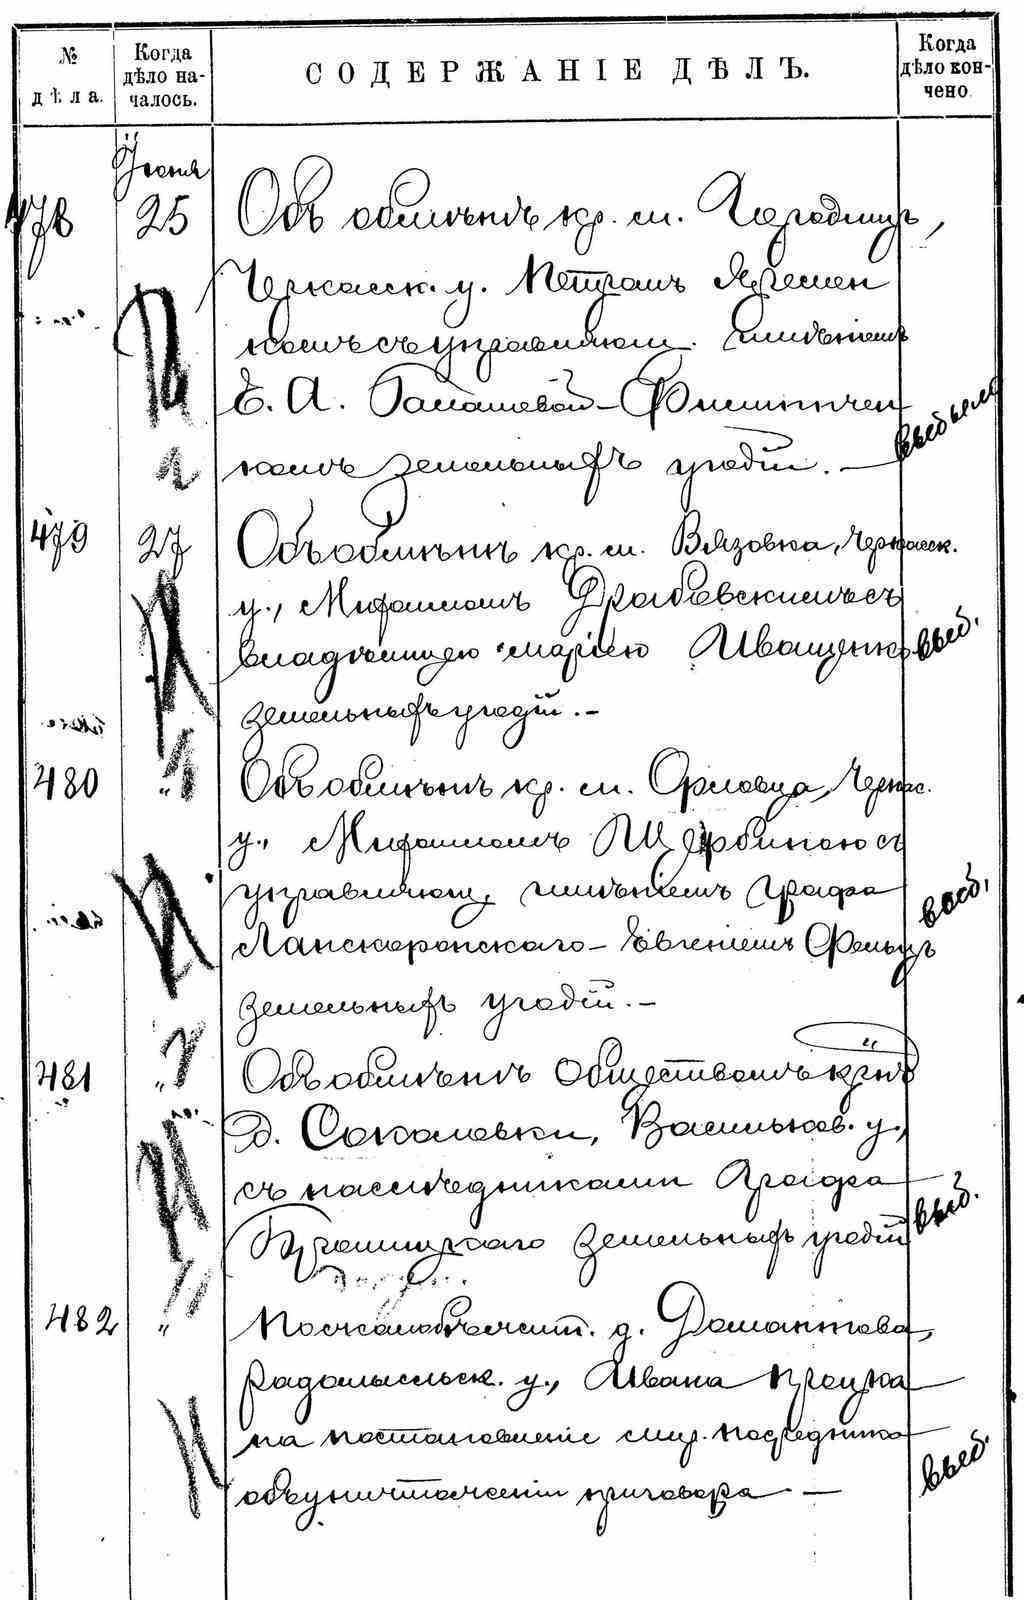 № дѣла.
Когда дѣло началось.
СОДЕРЖАНІЕ ДѢЛЪ.
Когда дѣло кончено
Іюня
478
25
Объ обмѣнѣ кр. м. Городища,
Черкасск. у. Петромъ Яремен
комъ съ управляющ. имѣніемъ
Е. А. Балашевой - Филипчен
комъ земельныхъ угодій. —
выбыло
479
27
Объ обмѣнѣ кр. м. Вязовка, Черкасск.
у., Михаиломъ Драбовскимъ съ
владѣлицею Маріею Иващенко
земельныхъ угодій. —
выб.
480
"
Объ обмѣнѣ кр. м. Орловца, Черкас.
у., Михаиломъ Щербиною съ
управляющ. имѣніемъ графа
Ланскоронскаго - Евгеніемъ Фельцъ
земельныхъ угодій. —
выб.
481
"
Объ обмѣнѣ обществомъ кр-нъ
д. Соколовки, Васильков. у.,
съ наслѣдниками Графа
Браницкаго земельныхъ угодій
выб.
482
"
По жалобѣ жит. д. Домантова,
Радомысльск. у., Ивана Процка
на постановленіе мир. посредника
объ уничтоженіи приговора —
выб.